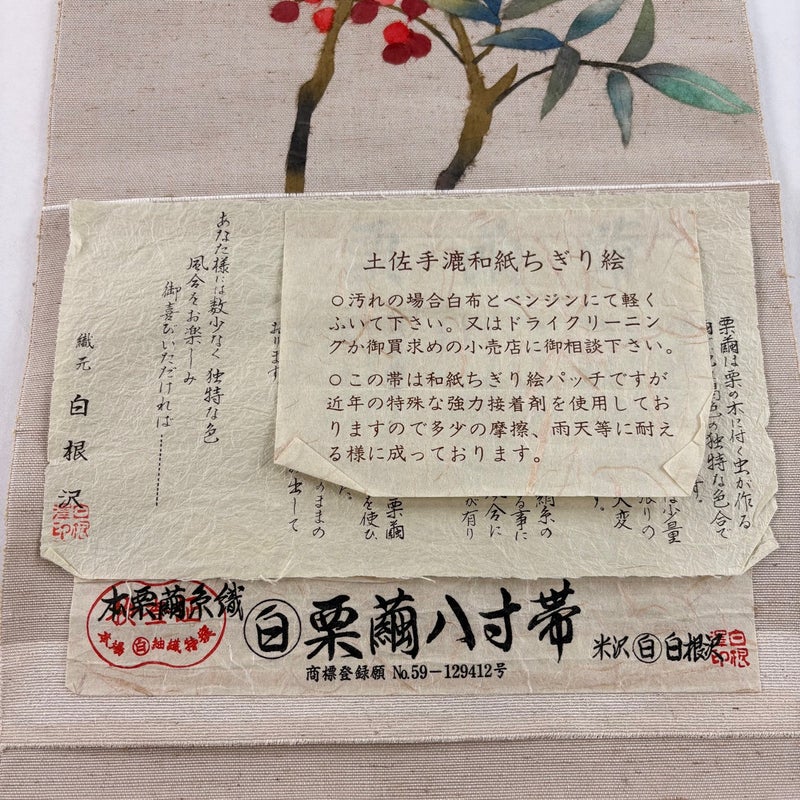 土佐手漉和紙ちぎり絵
○汚れの場合白布とベンジンにて軽く
ふいて下さい。又はドライクリーニン
グか御買求めの小売店に御相談下さい。
○この帯は和紙ちぎり絵パッチですが
近年の特殊な強力接着剤を使用してお
りますので多少の摩擦、雨天等に耐え
る様に成っております。
栗繭は栗の木に付く虫が作る
の独特な色合で
す。
は少量
限りの
大変
す。
絹糸の
る事に
合に
び有り
栗繭
を使ひ
た。
のままの
み出して
おります
あなた様には数少なく独特な色
風合をお楽しみ
御喜びいただければ…………
織元 白根沢
白根澤印
本栗繭糸織
紬織特撰
白 栗繭八寸帯
商標登録願 No.59-129412号
米沢 白 白根沢
白根澤印